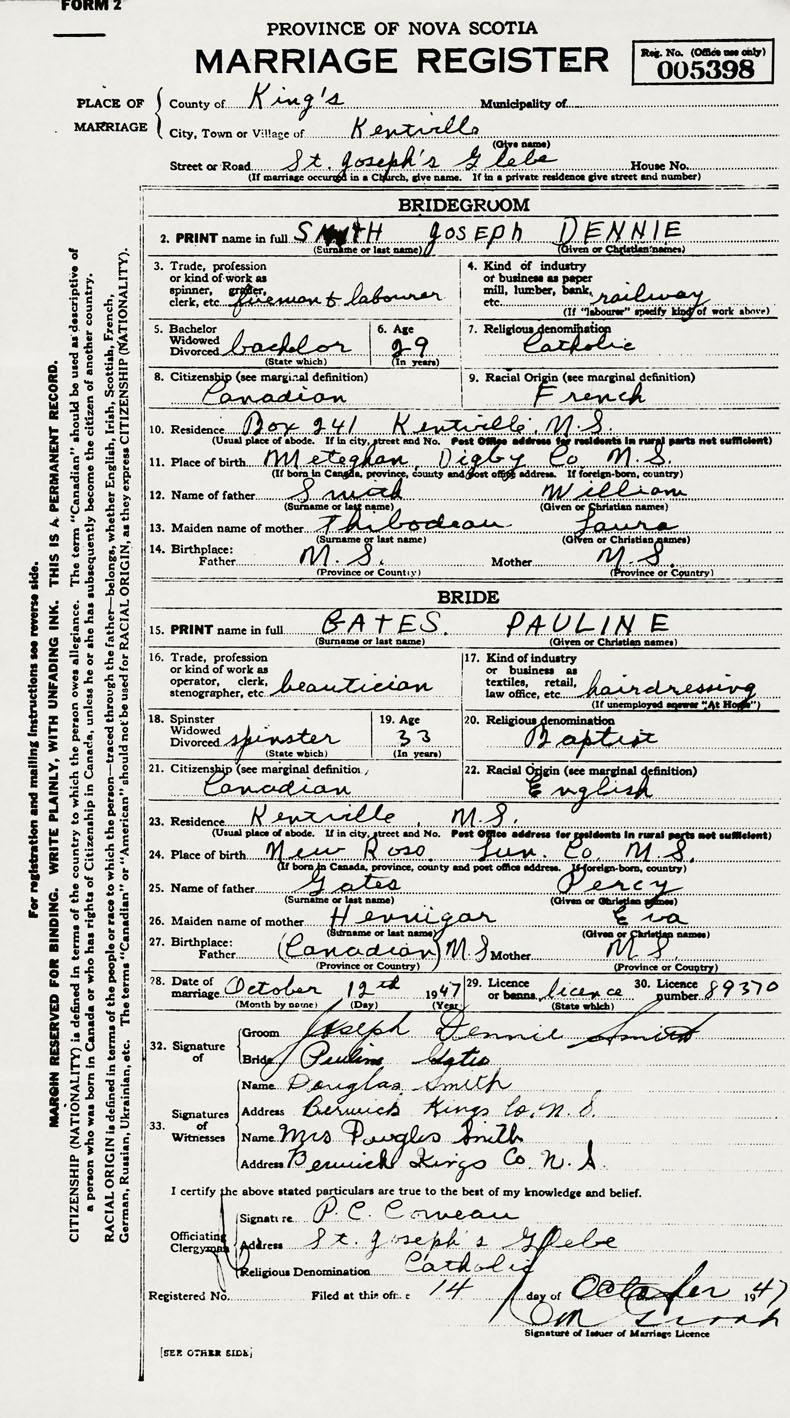 FORM 2
PROVINCE OF NOVA SCOTIA
MARRIAGE REGISTER
Reg. No. (Office use only)
005398
PLACE OF MARRIAGE
County of King's Municipality of
City, Town or Village of Kentville
(Give name)
Street or Road St. Joseph's Glebe House No.
(If marriage occured in a Church, give name. If in a private residence give street and number)
BRIDEGROOM
2. PRINT name in full SMITH JOSEPH DENNIE
(Surname or last name) (Given or Christian names)
3. Trade, profession or kind of work as spinner, grafter, clerk, etc. fireman & labourer
4. Kind of industry or business as paper mill, lumber, bank, etc. railway
(If "labourer" specify kind of work above)
5. Bachelor Widowed Divorced bachelor
(State which)
6. Age 29
(In years)
7. Religious denomination
Catholic
8. Citizenship (see marginal definition)
Canadian
9. Racial Origin (see marginal definition)
French
10. Residence Box 241 Kentville, N.S.
(Usual place of abode. If in city, street and No. Post Office address for residents in rural parts not sufficient)
11. Place of birth Meteghan, Digby Co N.S.
(If born in Canada, province, county and post office address. If foreign-born, country)
12. Name of father Smith William
(Surname or last name) (Given or Christian names)
13. Maiden name of mother Thibodeau Laura
(Surname or last name) (Given or Christian names)
14. Birthplace:
Father N.S. Mother N.S.
(Province or Country) (Province or Country)
BRIDE
15. PRINT name in full GATES. PAULINE
(Surname or last name) (Given or Christian names)
16. Trade, profession or kind of work as operator, clerk, stenographer, etc. beautician
17. Kind of industry or business as textiles, retail, law office, etc. hairdressing
(If unemployed answer "At Home")
18. Spinster Widowed Divorced spinster
(State which)
19. Age 33
(In years)
20. Religious denomination
Baptist
21. Citizenship (see marginal definition)
Canadian
22. Racial Origin (see marginal definition)
English
23. Residence Kentville, N.S.
(Usual place of abode. If in city, street and No. Post Office address for residents in rural parts not sufficient)
24. Place of birth New Ross Lun. Co. N.S.
(If born in Canada, province, county and post office address. If foreign-born, country)
25. Name of father Gates Percy
(Surname or last name) (Given or Christian names)
26. Maiden name of mother Hennigar Eva
(Surname or last name) (Given or Christian names)
27. Birthplace:
Father (Canadian) N.S Mother N.S.
(Province or Country) (Province or Country)
28. Date of marriage October 12th 1947
(Month by name) (Day) (Year)
29. Licence or banns licence
(State which)
30. Licence number 89370
32. Signature of
Groom Joseph Dennie Smith
Bride Pauline Gates
33. Signatures of Witnesses
Name Douglas Smith
Address Berwick Kings Co. N.S.
Name Mrs Douglas Smith
Address Berwick Kings Co N.S.
I certify the above stated particulars are true to the best of my knowledge and belief.
Officiating Clergyman
Signature P.C. Comeau
Address St. Joseph's Glebe
Religious Denomination Catholic
Registered No. Filed at this office 14 day of October 1947
Signature of Issuer of Marriage Licence
[SEE OTHER SIDE]
For registration and mailing instructions see reverse side.
MARGIN RESERVED FOR BINDING. WRITE PLAINLY, WITH UNFADING INK. THIS IS A PERMANENT RECORD.
CITIZENSHIP (NATIONALITY) is defined in terms of the country to which the person owes allegiance. The term "Canadian" should be used as descriptive of
a person who was born in Canada or who has rights of Citizenship in Canada, unless he or she has subsequently become the citizen of another country.
RACIAL ORIGIN is defined in terms of the people or race to which the person—traced through the father—belongs, whether English, Irish, Scottish, French,
German, Russian, Ukrainian, etc. The terms "Canadian" or "American" should not be used for RACIAL ORIGIN, as they express CITIZENSHIP (NATIONALITY).